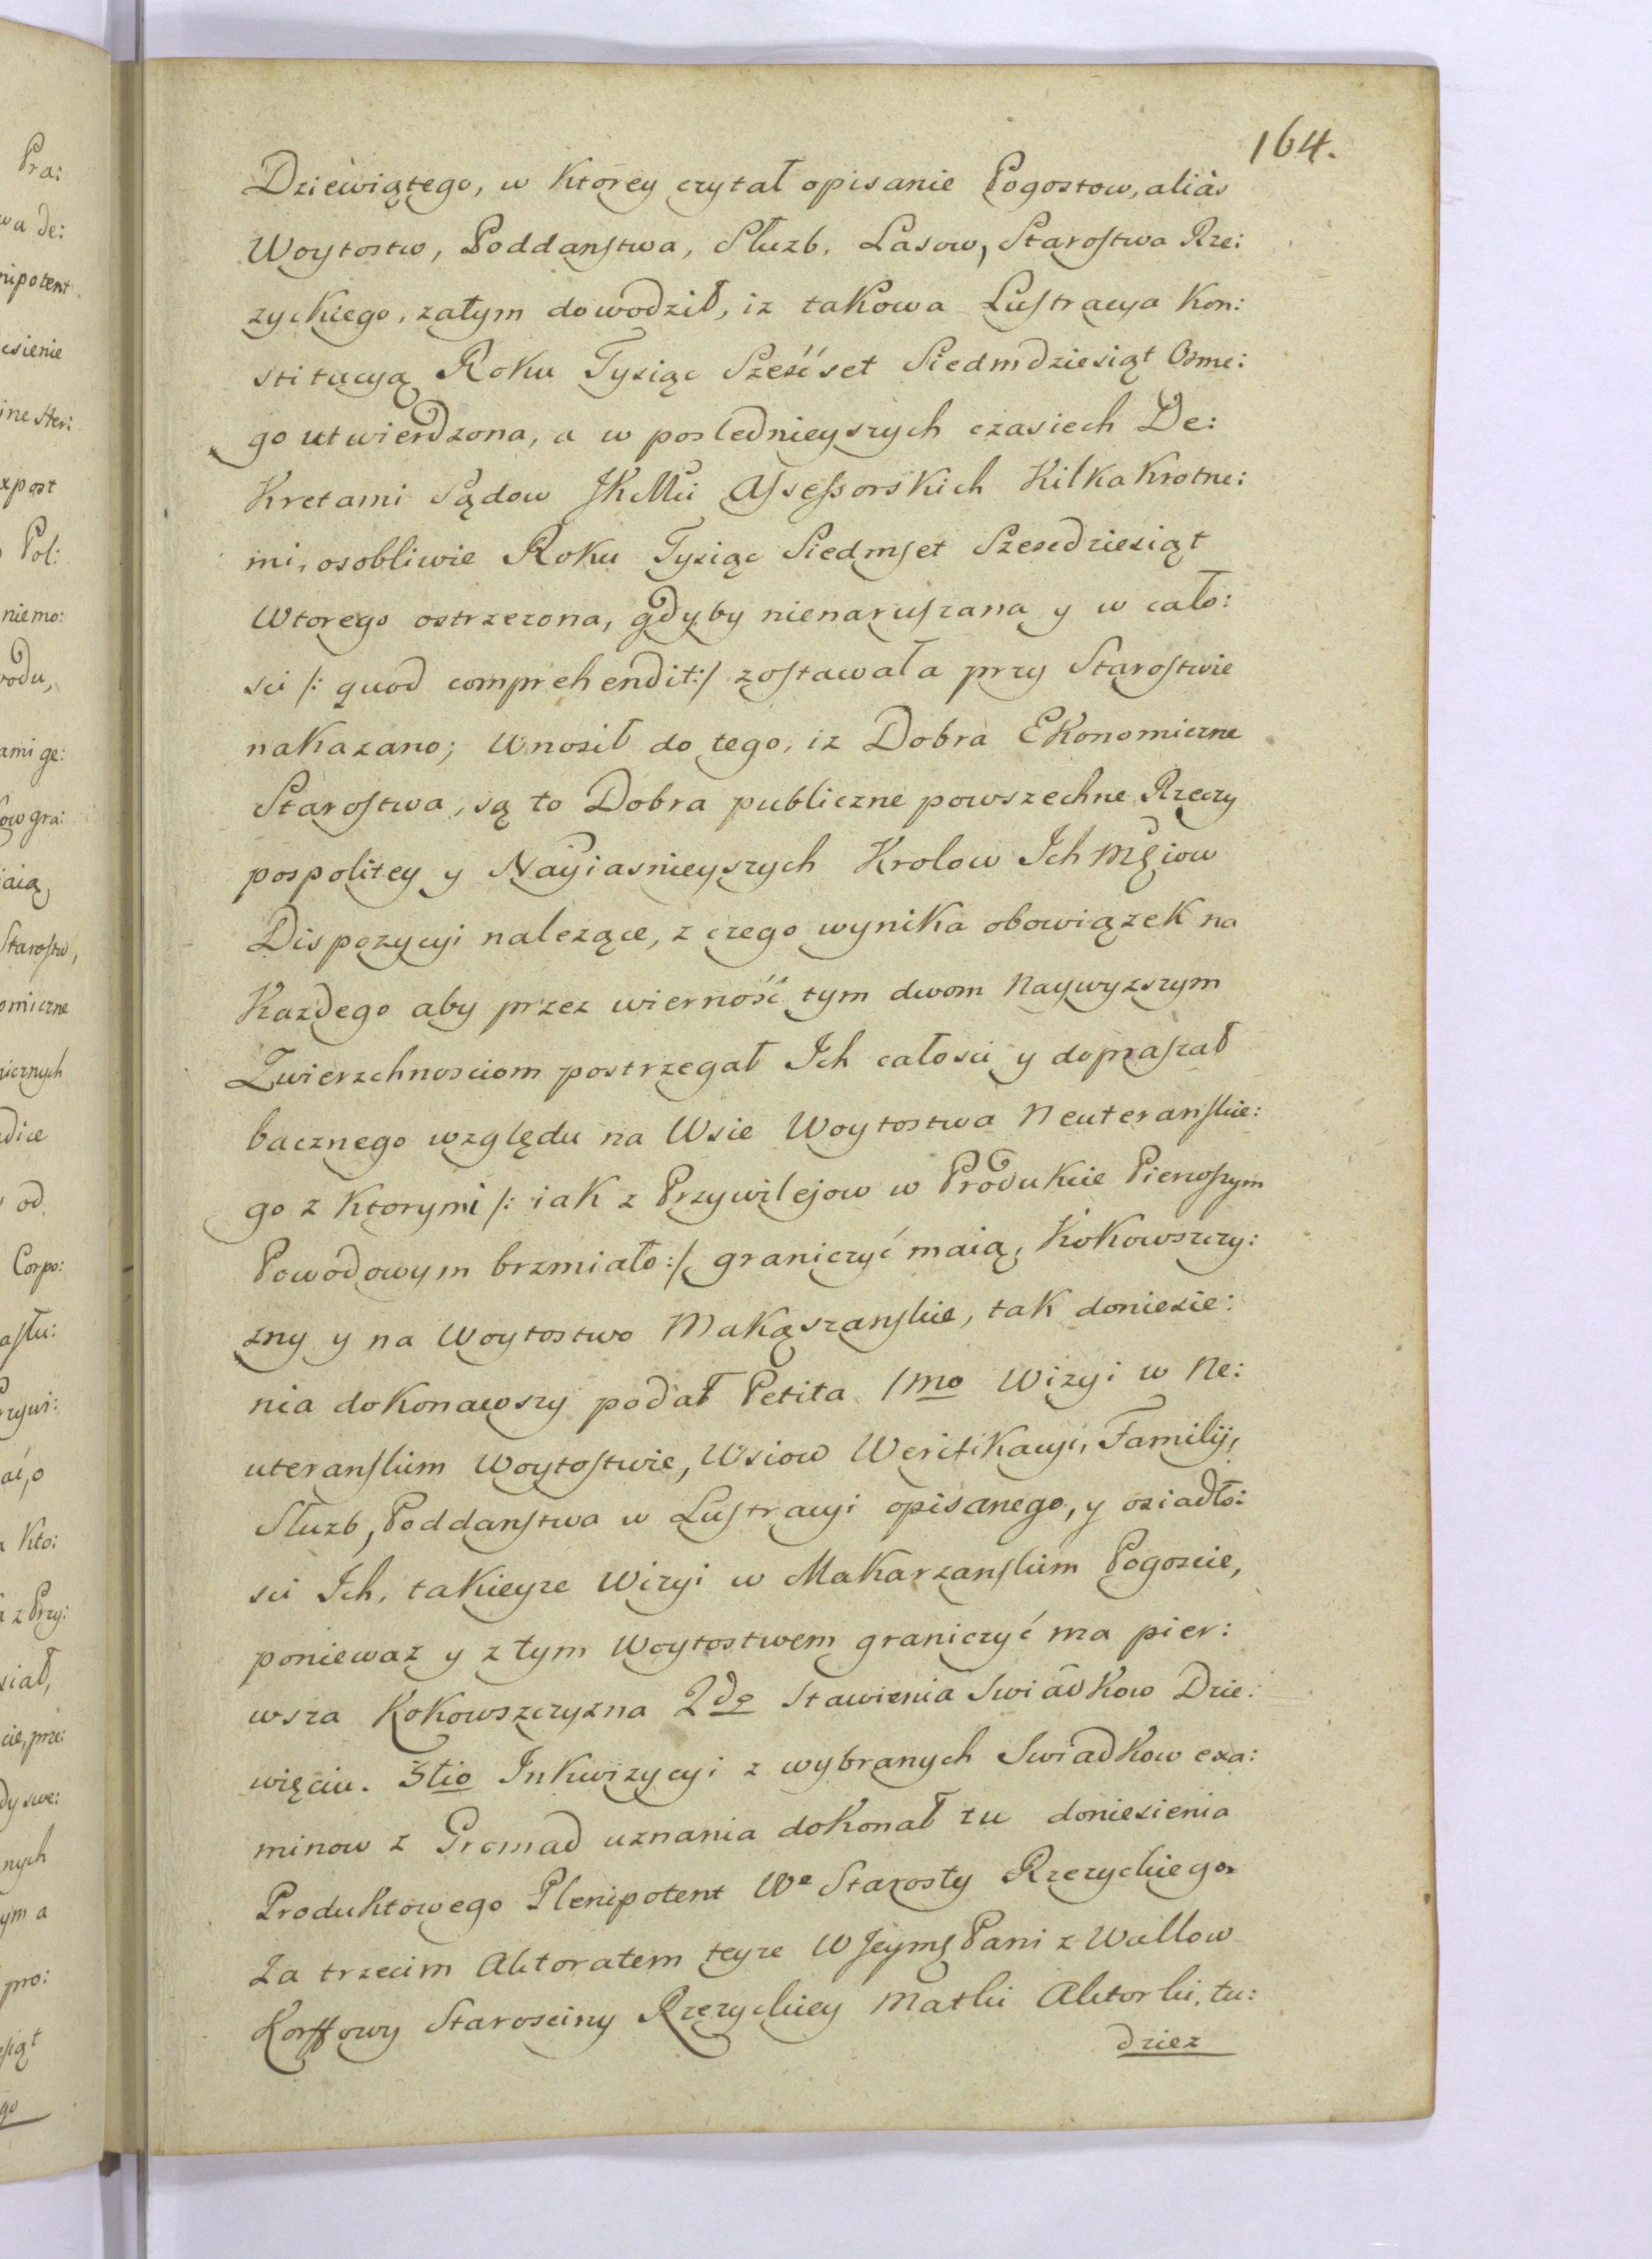 164.
Dziewiątego, w ktorey czytał opisanie Pogostow, aliàs
Woytostw, Poddanstwa, Słuzb, Lasow, Starostwa Rze:
zyckiego, zatym dowodził, iz takowa Lustracya Kon:
stitucyą Roku Tysiąc Sześćset Siedmdziesiąt Osme:
go utwierdzona, a w poslednieyszych czasiech De:
kretami Sądow JKMci Assessorskich Kilkakrotne:
mi, osobliwie Roku Tysiąc Siedmset Szescdziesiąt
Wtorego ostrzezona, gdyby nienaruszana y w cało:
sci /: quod comprehendit :/ zostawała przy Starostwie
nakazano; Wnosił do tego, iz Dobra Ekonomiczne
Starostwa, są to Dobra publiczne powszechne Rzeczy
pospolitey y Nayiasnieyszych Krolow Ich Mściow
Dispozycyi nalezące, z czego wynika obowiązek na
Kazdego aby przez wierność tym dwom Naywyzszym
Zwierzchnosciom postrzegał Ich całosci y dopraszał
bacznego względu na Wsie Woytostwa Neuteranskie:
go z ktorymi /: iak z Przywilejow w Produkcie Pierwszym
Powodowym brzmiało :/ graniczyć maią, Kokowszczy:
zny y na Woytostwo Makąszanskie, tak doniesie:
nia dokonawszy podał Petita 1mo Wizyi w Ne:
uteranskim Woytostwie, Wsiow Werifikacyi, Familij,
Słuzb, Poddanstwa w Lustracyi opisanego, y osiadło:
sci Ich, takieyze Wizyi w Makarzanskim Pogoscie,
poniewaz y z tym Woytostwem graniczyć ma pier:
wsza Kokowszczyzna 2do Stawienia Swiadkow Dzie:
więciu. 3tio Inkwizycyi z wybranych Swiadkow exa:
minow z Gromad uznania dokonał tu doniesienia
Produktowego Plenipotent We Starosty Rzezyckiego.
Za trzecim Aktoratem teyze W Jeymś Pani z Wallow
Korffowy Starosciny Rzezyckiey Matki Aktorki, tu:
dziez